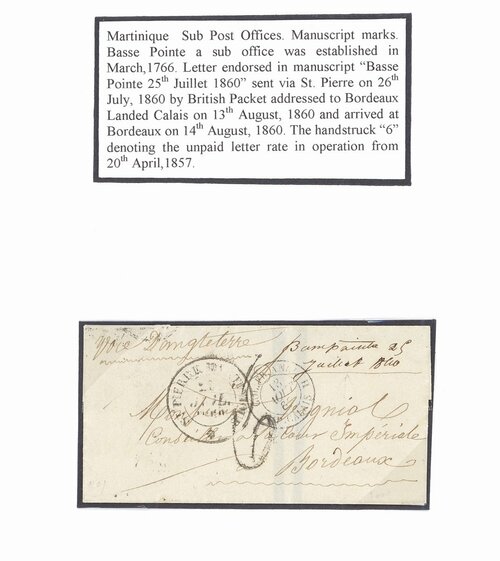 Martinique Sub Post Offices. Manuscript marks.
Basse Pointe a sub office was established in
March,1766. Letter endorsed in manuscript “Basse
Pointe 25th Juillet 1860” sent via St. Pierre on 26th
July, 1860 by British Packet addressed to Bordeaux
Landed Calais on 13th August, 1860 and arrived at
Bordeaux on 14th August, 1860. The handstruck “6”
denoting the unpaid letter rate in operation from
20th April,1857.
Voie D'Angleterre
25
Juillet 1860
ST PIERRE
JUIL.
6
Cour Impériale
Bordeaux